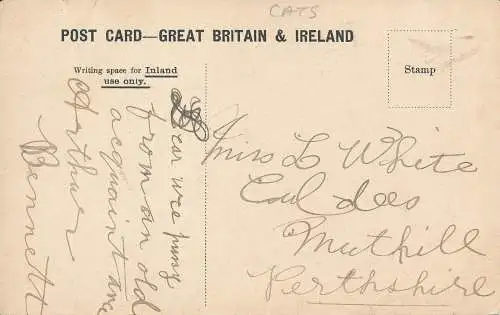 CATS
POST CARD—GREAT BRITAIN & IRELAND
Writing space for Inland
use only.
Stamp
Dear wee pussy
from an old
acquaintance
Arthur
Bennett
Miss L White
Culdees
Muthill
Perthshire